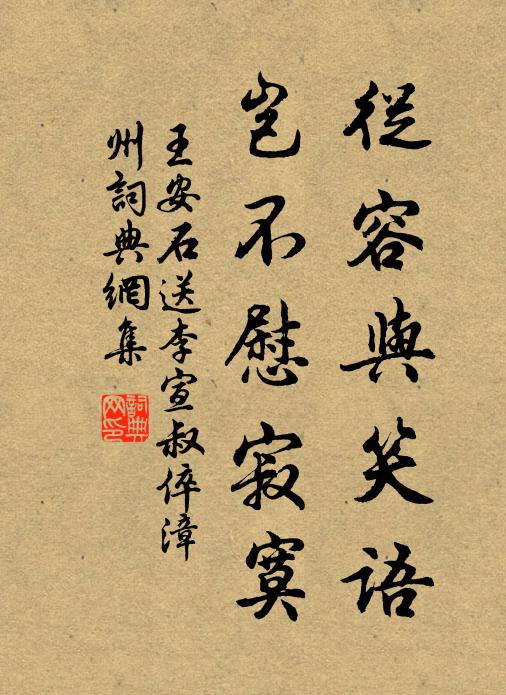 從容與笑語
豈不慰寂寞
王安石送李宣叔倅漳
州詞典網集
詞典
网印